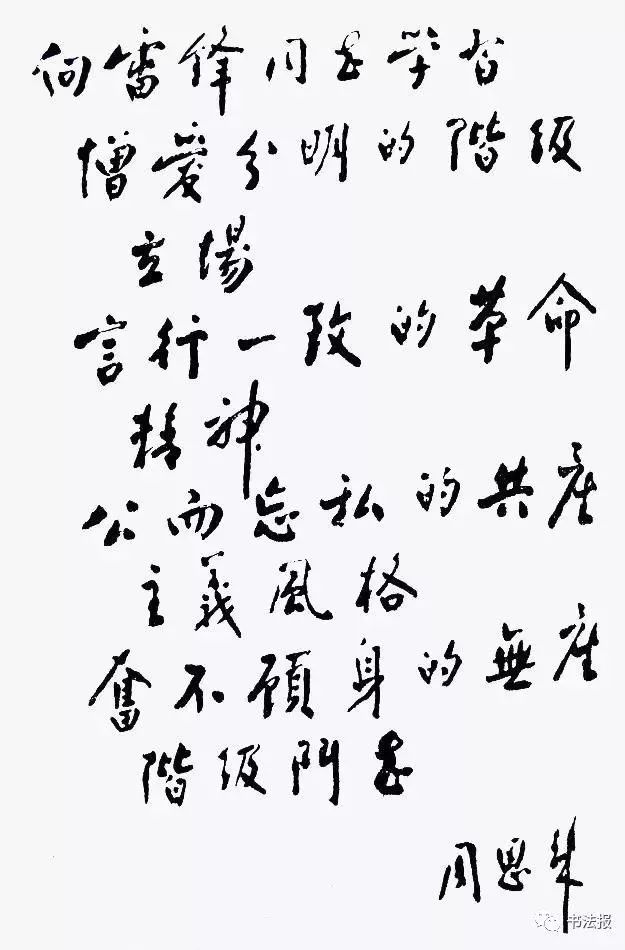 向雷锋同志学习
憎爱分明的階级
立場
言行一致的革命
精神
公而忘私的共产
主義風格
奮不顾身的無产
階级鬥志
周恩来
书法报